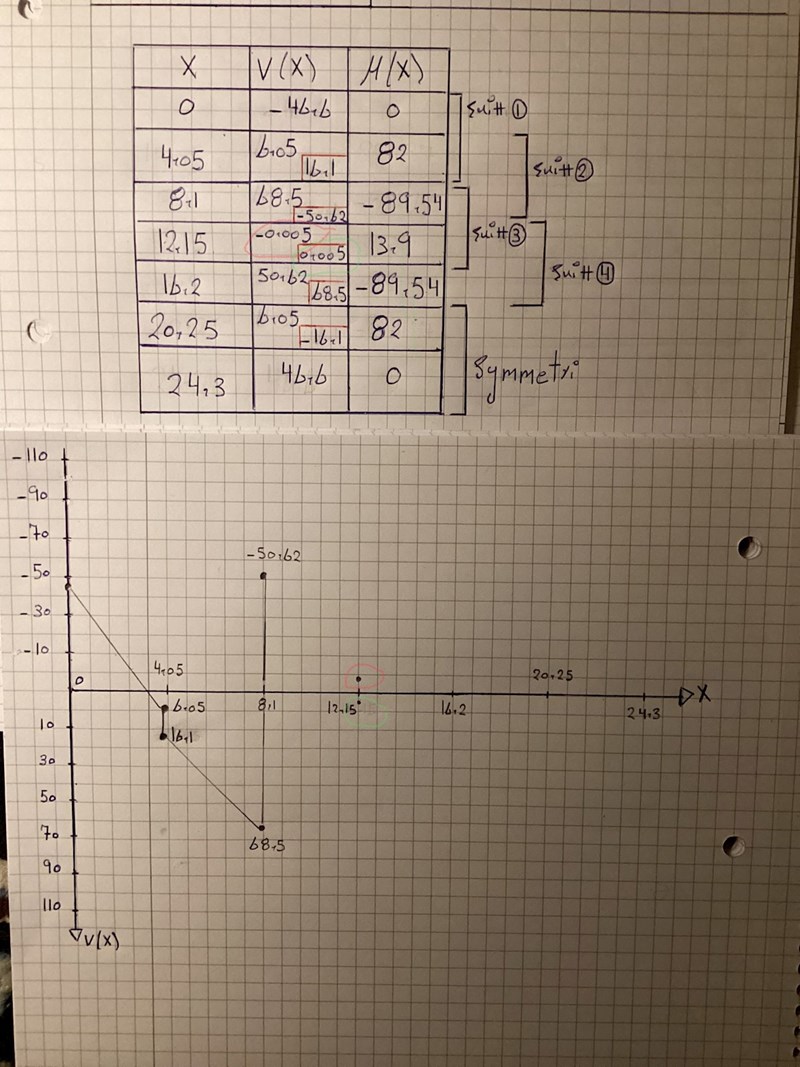 X V(X) M(X)
0 -46,6 0
4,05 6,05 16,1 82
8,1 68,5 -50,62 -89,54
12,15 -0,005 0,005 13,9
16,2 50,62 68,5 -89,54
20,25 6,05 -16,1 82
24,3 46,6 0
Snitt ①
Snitt ②
Snitt ③
Snitt ④
Symmetri
-110
-90
-70
-50
-30
-10
10
30
50
70
90
110
V(X)
-50,62
4,05 20,25
0 X
6,05 8,1 12,15 16,2 24,3
16,1
68,5